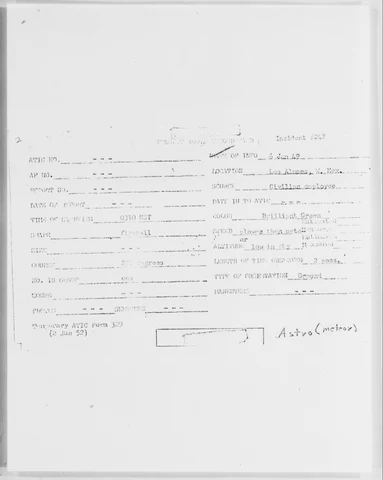 Incident
ATIC NO. - - -
DATE OF INFO 6 Jun 49
AF NO. - - -
LOCATION Los Alamos, N. Mex.
REPORT NO. - - -
SOURCE Civilian employee
DATE OF REPORT - - -
DATE IN TO ATIC - - -
TIME OF SIGHTING MST
COLOR Brilliant Green
SHAPE
SPEED slower than
or
SIZE - - -
ALTITUDE low in sky
COURSE
LENGTH OF TIME OBSERVED 2 secs.
NO. IN GROUP one
TYPE OF OBSERVATION Ground
SOUND - - -
MANEUVERS - - -
PHOTOS - - - SKETCHES - - -
Temporary ATIC Form 329
(2 Jan 52)
Astro (meteor)